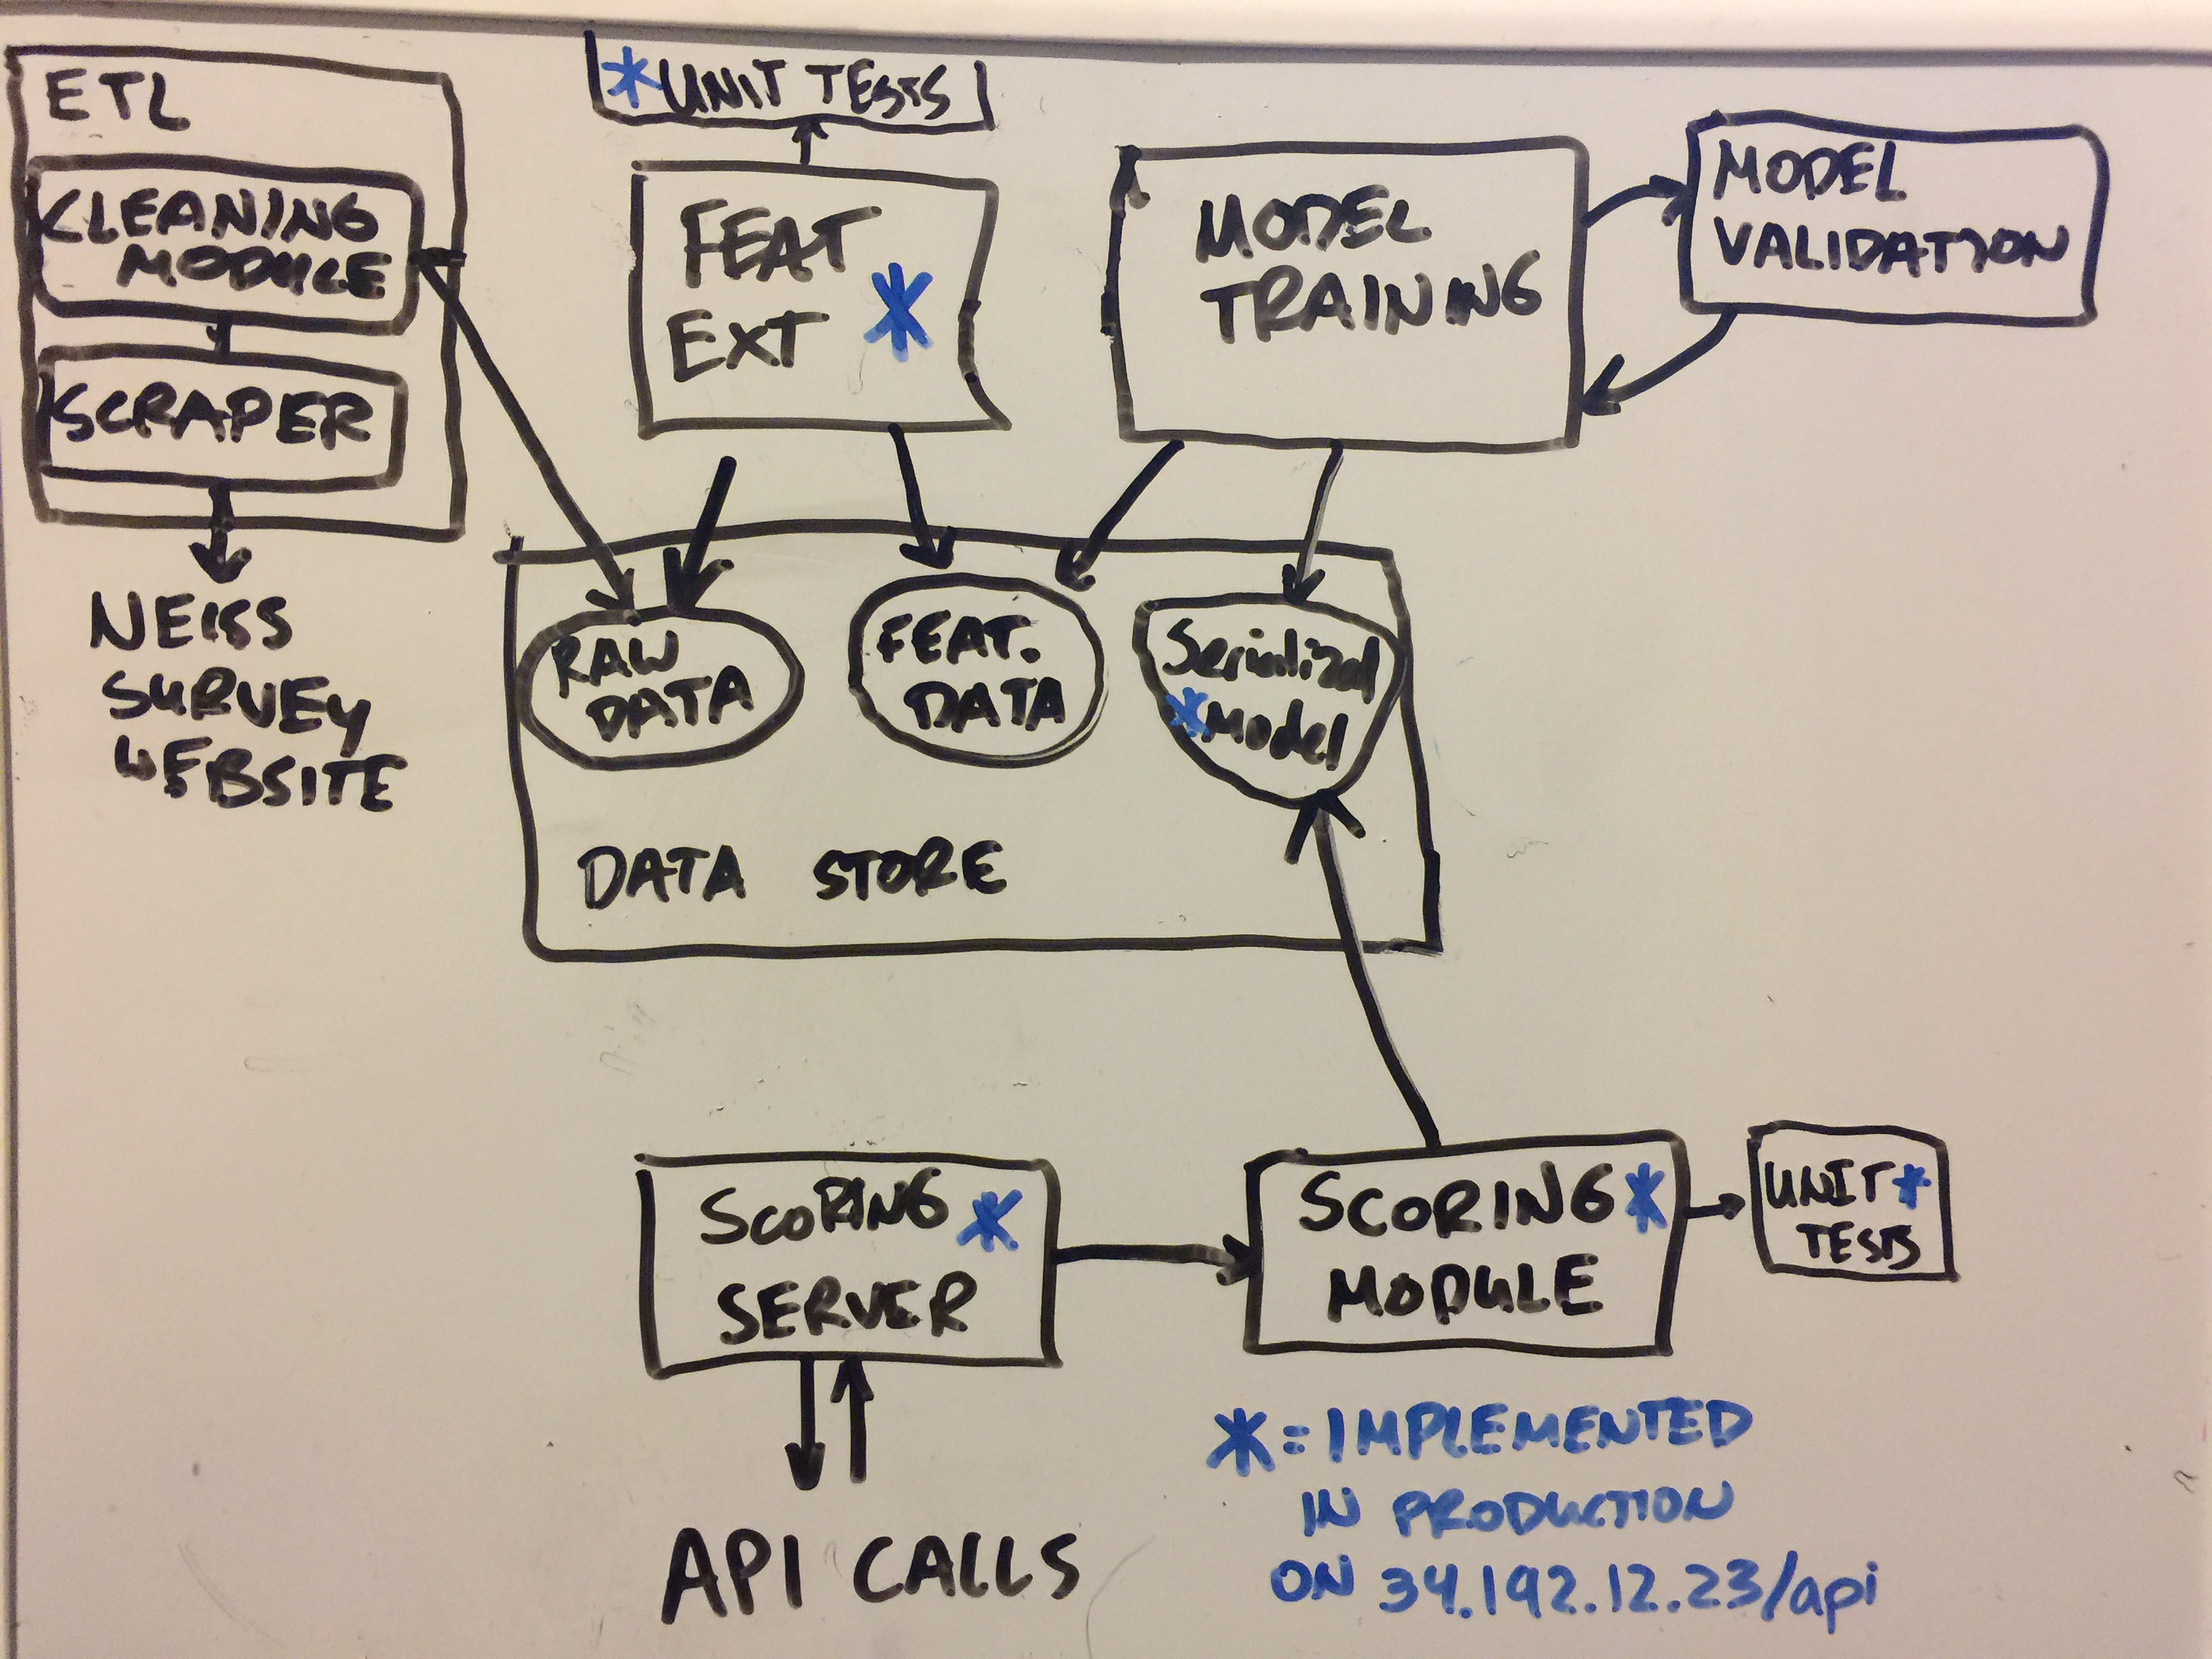 ETL
CLEANING
MODULE
SCRAPER
NEISS
SURVEY
WEBSITE
*UNIT TESTS
FEAT
EXT *
MODEL
TRAINING
MODEL
VALIDATION
RAW
DATA
FEAT.
DATA
Serialized
*Model
DATA STORE
SCORING *
SERVER
API CALLS
SCORING *
MODULE
UNIT *
TESTS
* = IMPLEMENTED
IN PRODUCTION
ON 34.192.12.23/api